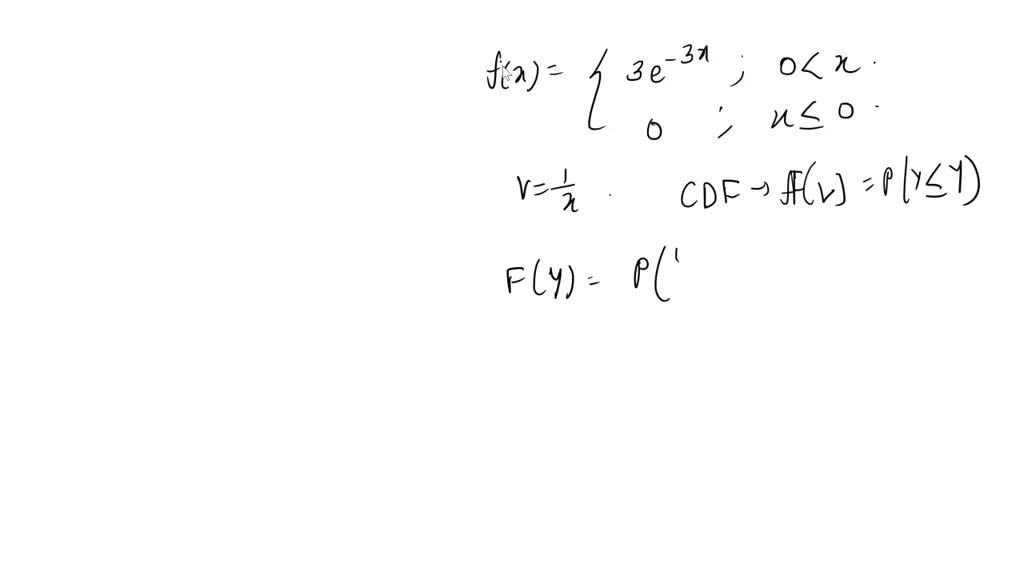 f(x) = { 3e^{-3x} ; 0 < x .
0 ; x ≤ 0 .
Y = 1/x . CDF → F(Y) = P(Y ≤ y)
F(y) = P(